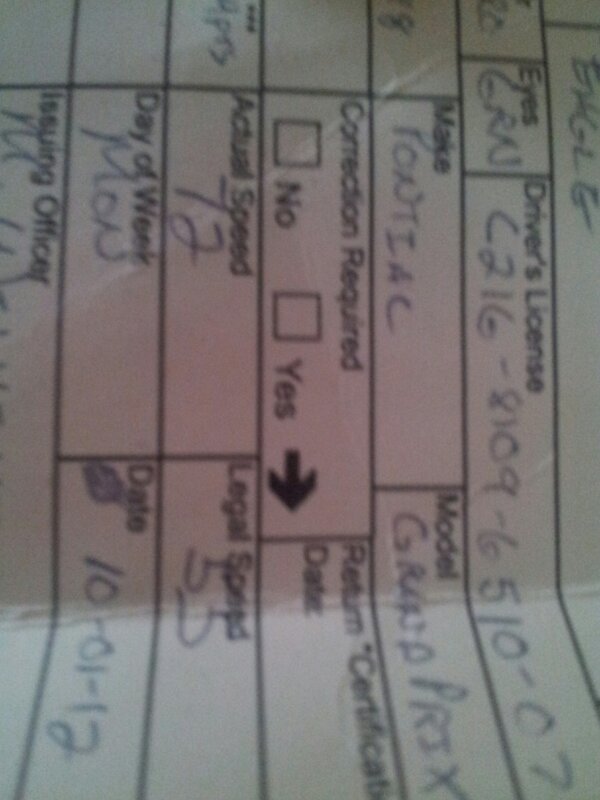 EAGLE
Eyes Driver's License
GRN C216-8109-6510-07
Make Model
PONTIAC GRAND PRIX
Correction Required Return "Certificati
No Yes Date:
Actual Speed Legal Speed
72 55
Day of Week Date
MON 10-01-12
Issuing Officer